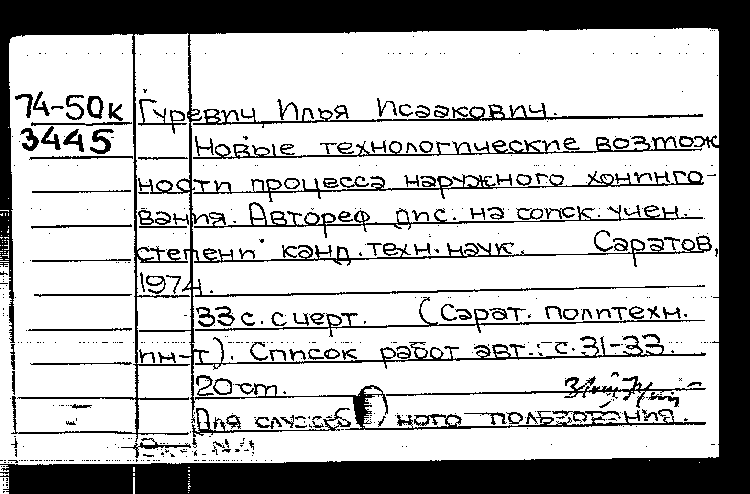 74-50к Гуревич, Илья Исаакович.
3445 Новые технологические возмож
ности процесса наружного хонинго-
вания. Автореф. дис. на соиск. учен.
степени канд. техн. наук. Саратов,
1974.
33 с. с черт. (Сарат. политехн.
ин-т). Список работ авт.: с. 31-33.
20 см.
Для служеб ного пользования.